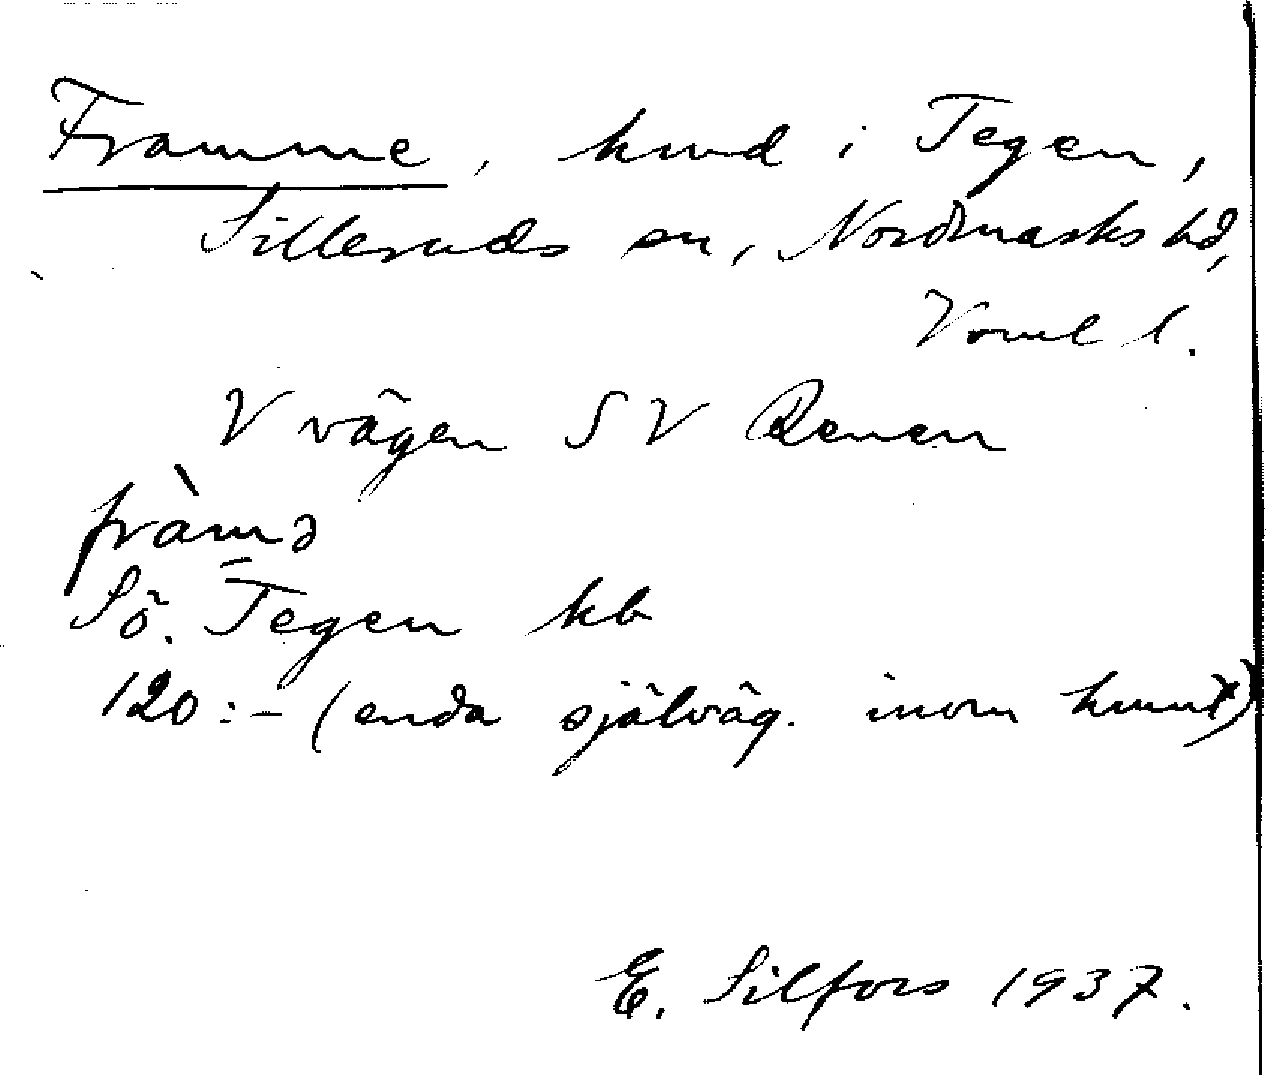 Framme, hmd i Tegen,
Silleruds sn, Nordmarks hd,
Värml l.
V vägen SV Renen
fràmə
Sö. Tegen kb
120:- (enda själväg. inom hmnt)
E. Silfors 1937.